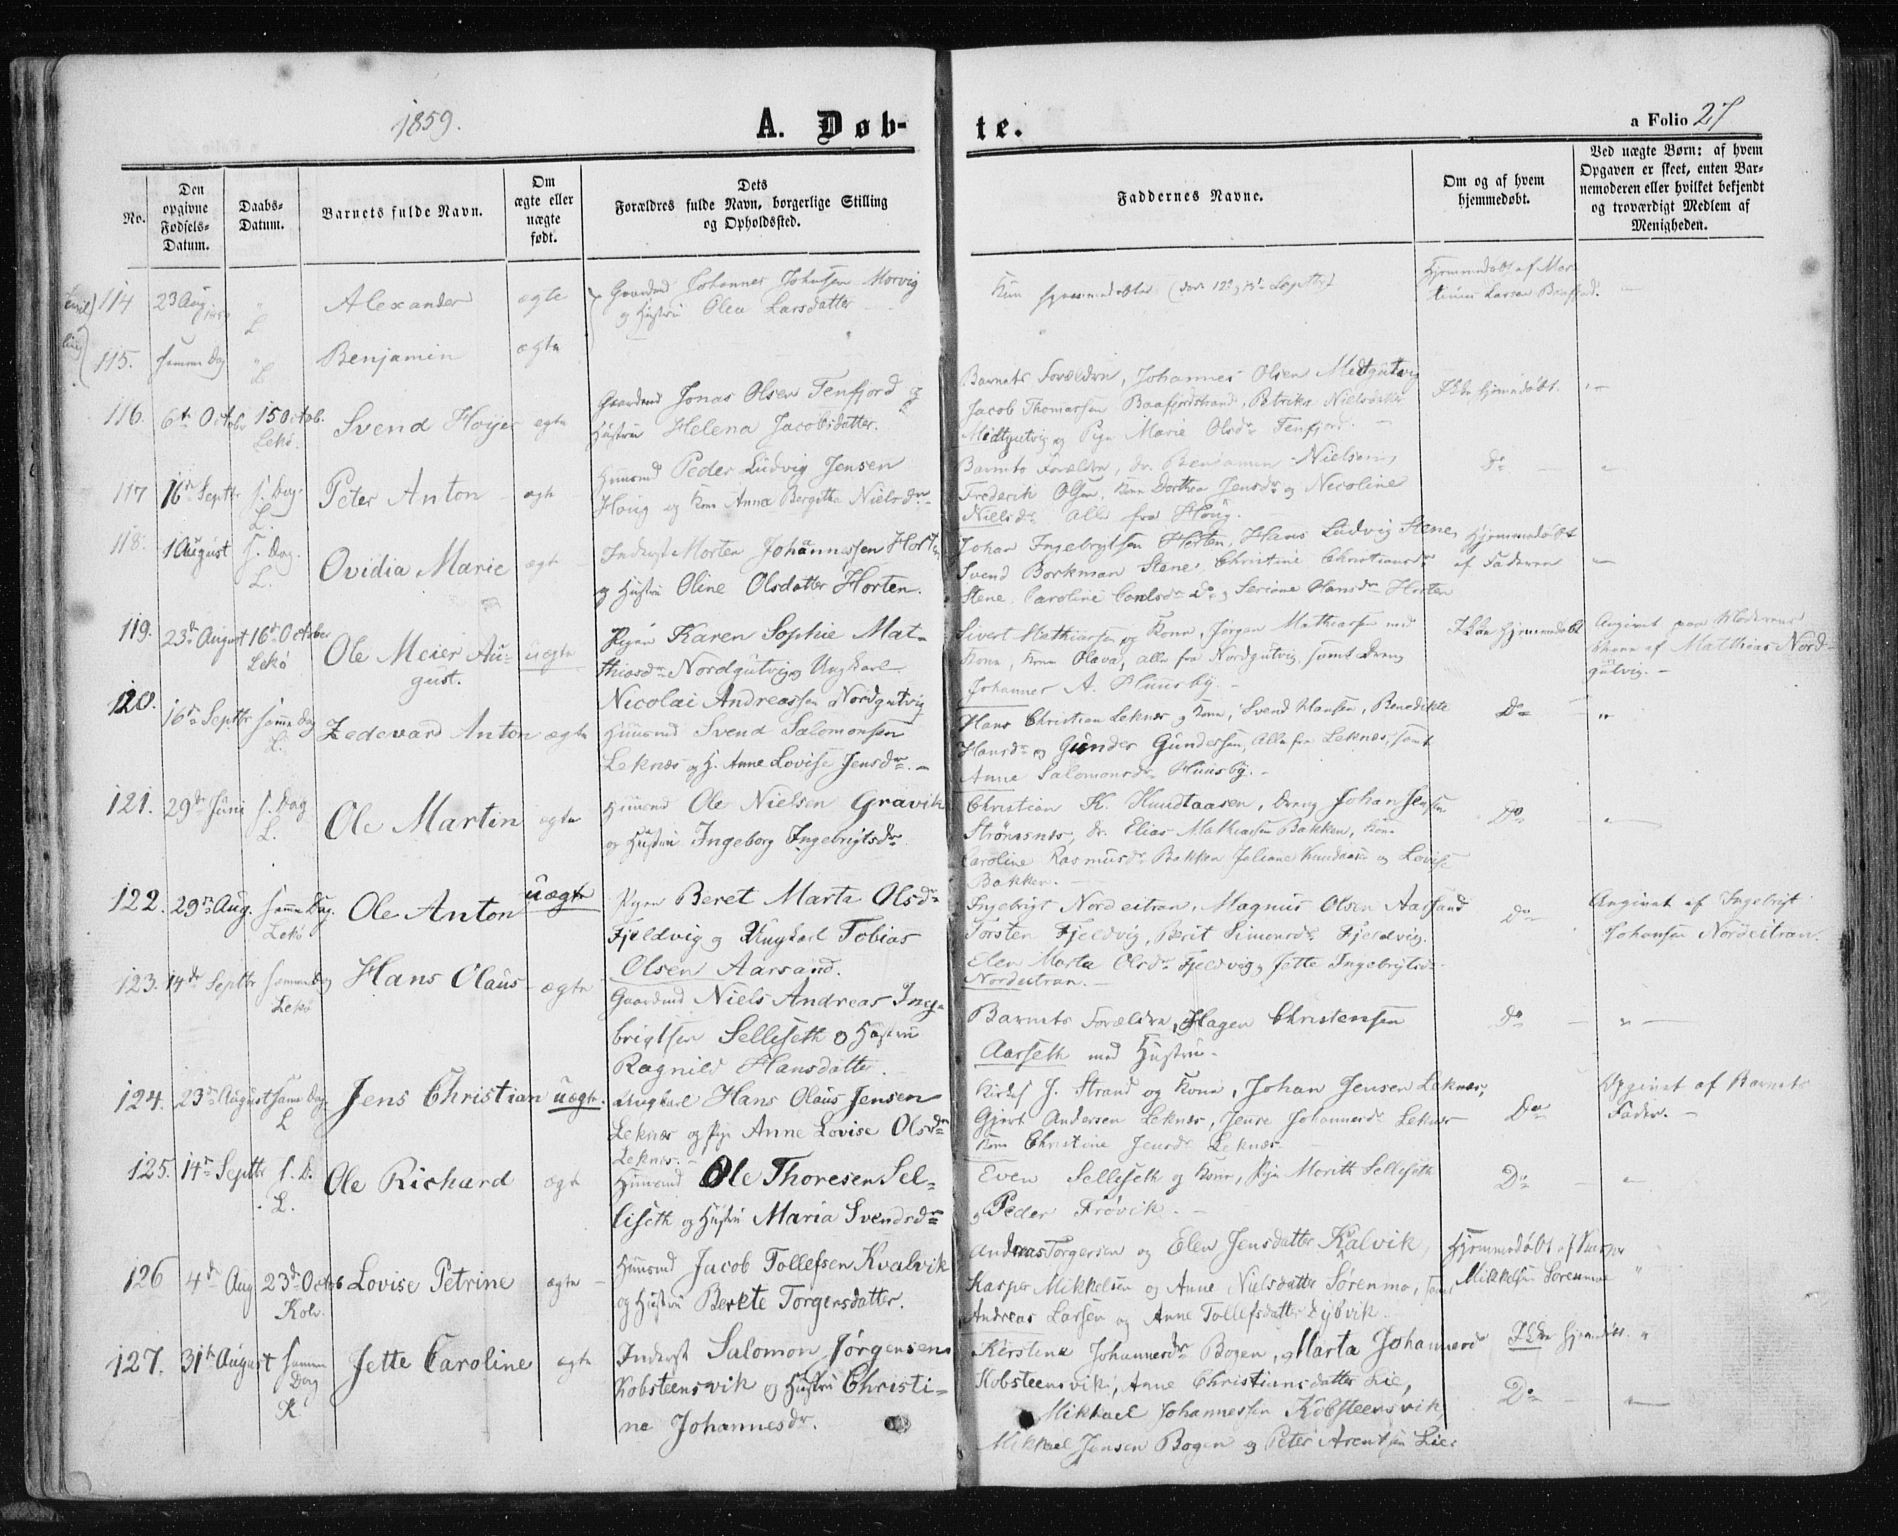 1859.
A. Døb-
te.
a Folio 27
No.
Den
opgivne
Fødsels-
Datum.
Daabs-
Datum.
Barnets fulde Navn.
Om
ægte eller
uægte
født.
Dets
Forældres fulde Navn, borgerlige Stilling
og Opholdssted.
Faddernes Navne.
Om og af hvem
hjemmedøbt.
Ved uægte Børn: af hvem
Opgaven er skeet, enten Bar-
nemoderen eller hvilket bekjendt
og troværdigt Medlem af
Menigheden.
114 23 Aug. " L Alexander ægte
Gaardmd Johannes Johnsen Horvig
og Hustru Olea Larsdatter
Kun hjemmedøbte
Hjemmedøbt af Mar-
tinus Larsen
115. samme Dag " L Benjamin ægte
116. 6te Octobr 15 Octob. Lekø Svend Høyer ægte
Gaardmd Jonas Olsen Tenfjord og
Hustru Helena Jacobsdatter.
Barnets Forældre, Johannes Olsen Midtgutvig
Jacob Thomassen Baafjordstrand, Petrikke Nielsdatter
Midtgutvig og Pige Marie Olsdr Tenfjord.
Ikke Hjemmedøbt
117 16de Septbr s. Dag L. Peter Anton ægte
Huusmd Peder Ludvig Jensen
Houg og Kone Anna Bergitha Nielsdr
Barnets Forældre, dr. Benjamin Nielsen,
Frederik Olsen, Kone Dorthea Jensdr og Nicoline
Nielsdr alle fra Houg.
Do
118. 1 August s. Dag. L. Ovidia Marie ægte
Inderst Morten Johannessen Horten
og Hustru Oline Olsdatter Horten.
Johan Ingebrigtsen Horten, Hans Ludvig Stene,
Svend Borkman Stene, Christine Christiansdr
Stene, Caroline Carlsdr Do og Seriane Hansdr Horten
Hjemmedøbt
af Faderen
119. 23de August 16de October Lekø Ole Meier Au-
gust. uægte
Pigen Karen Sophie Mat-
thiasdr Nordgutvig og Ungkarl
Nicolai Andreassen Nordgutvig
Sivert Mathiassen og Kone, Jørgen Mathiassen med
Kone, Kone Olava, alle fra Nordgutvig, samt Dreng
Johannes A. Huusby.
Ikke Hjemmedøbt
Angivet paa Moderens
af Matthias Nord-
gutvig.
120. 16de Septbr samme Dag L. Zedevard Anton ægte
Huusmd Svend Salomonsen
Leknæs og H. Anne Lovise Jensdr.
Hans Christian Leknæs og Kone, Svend Hansen, Benedikte
Hansdr og Gunder Gundersen, Alle fra Leknæs, samt
Anne Salomonsdr Huusby.
Do
121. 29de Juni s. Dag L. Ole Martin ægte
Huusmd Ole Nielsen Gravik
og Hustru Ingeborg Ingebrigtsdr
Christian K. Kundtaasen, Dreng Johan Jensen
Strømsnes, dr. Elias Mathiassen Bakken, Kone
Caroline Rasmusdr Bakken Juliane Kundaasen og Lovise
Bakken.
Do
122. 29de Aug. samme Dag. Lekø Ole Anton uægte
Pigen Beret Marta Olsdr
Fjeldvig og Ungkarl Tobias
Olsen Aarsand.
Ingebrigt Nordeitran, Magnus Olsen Aarsand
Torsten Fjeldvig, Berit Simonsdr Fjeldvig,
Elen Marta Olsdr Fjeldvig, Jette Ingebrigtsdr
Nordeitran.
Do
Angivet af Ingebrigt
Johansen Nordeitran.
123. 14de Septbr samme Dag Lekø Hans Olaus ægte
Gaardmd Niels Andreas Inge-
brigtsen Selleseth og Hustru
Ragnild Hansdatter.
Barnets Forældre, Hagen Christensen
Aarseth med Hustru.
Do
124. 23de August samme Dag L Jens Christian uægte.
Ungkarl Hans Olaus Jensen
Leknæs og Pige Anne Lovise Olsdr
Leknæs.
J. Strand og Kone, Johan Jensen Leknæs,
Gjert Andersen Leknæs, Jense Johannesdr Leknæs
Kone Christine Jensdr Leknæs
Do
Opgivet af Barnets
Fader.
125. 14de Septbr s. D. L. Ole Richard ægte
Huusmd Ole Thoresen Sel-
liseth og Hustru Maria Svendsdr
Even Selleseth og Kone, Pige Marith Selleseth
og Peder Frøvik.
Do
126 4de Aug 23de Octob Kolv. Lovise Petrine ægte
Huusmd Jacob Tollefsen Kvalvik
og Hustru Berete Torgersdatter.
Andreas Torgersen og Elen Jensdatter Kalvik,
Kasper Mikkelsen og Anne Nielsdatter Sørenmo, samt
Andreas Larsen og Anne Tollefsdatter Dybvik.
Hjemmedøbt af Kasper
Mikkelsen Sørenmo
127. 31te August samme Dag K. Jette Caroline ægte
Inderst Salomon Jørgensen
Kobsteensvik og Hustru Christi-
ne Johannesdr.
Kirstine Johannesdr Bogen, og Marta Johannesdr
Kobsteensvik, Anne Christiansdatter Lie,
Mikkael Johannessen Kobsteensvik,
Mikkael Jensen Bogen og Peter Arentsen Lie.
Ikke hjemmedøbt.
Do